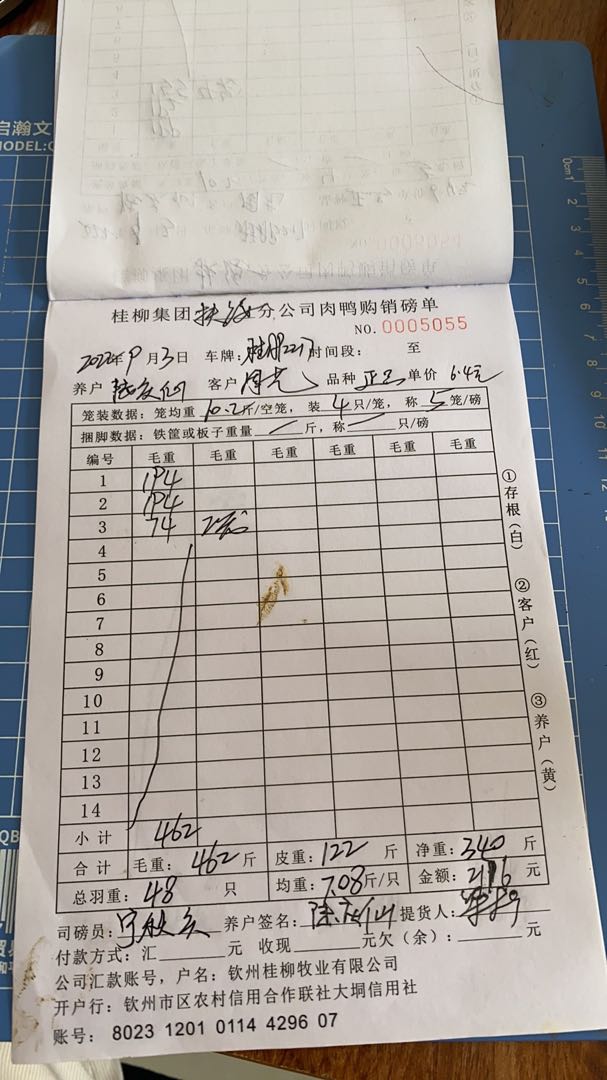 启瀚文
MODEL:
桂柳集团扶绥分公司肉鸭购销磅单
NO. 0005055
2022年9月3日 车牌: 时间段: 至
养户 客户 品种 单价 6.4元
笼装数据:笼均重 10.2斤/空笼,装 4只/笼,称 5笼/磅
捆脚数据:铁筐或板子重量 / 斤,称 只/磅
编号 毛重 毛重 毛重 毛重 毛重 毛重
1 194
2 194
3 74 2笼
4
5
6
7
8
9
10
11
12
13
14
小计 462
合计 毛重:462斤 皮重:122斤 净重:340斤
总羽重:48只 均重:7.08斤/只 金额:2176元
司磅员: 养户签名: 提货人:
付款方式:汇 元 收现 元欠(余): 元
公司汇款账号,户名:钦州桂柳牧业有限公司
开户行:钦州市区农村信用合作联社大垌信用社
账号: 8023 1201 0114 4296 07
①存根(白)
②客户(红)
③养户(黄)
0cm1 2 3 4 5 6 7 8 9 10 11 12